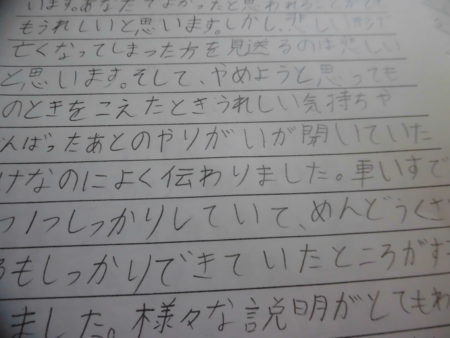 います。あなたでよかったと思われることがで
もうれしいと思います。しかし、悲しい
亡くなってしまった方を見送るのは悲しい
と思います。そして、やめようと思っても
のときをこえたときうれしい気持ちや
んばったあとのやりがいが聞いていた
けなのによく伝わりました。車いすで
つ1つしっかりしていて、めんどうくさ
るもしっかりできていたところがす
ました。様々な説明がとてもわ